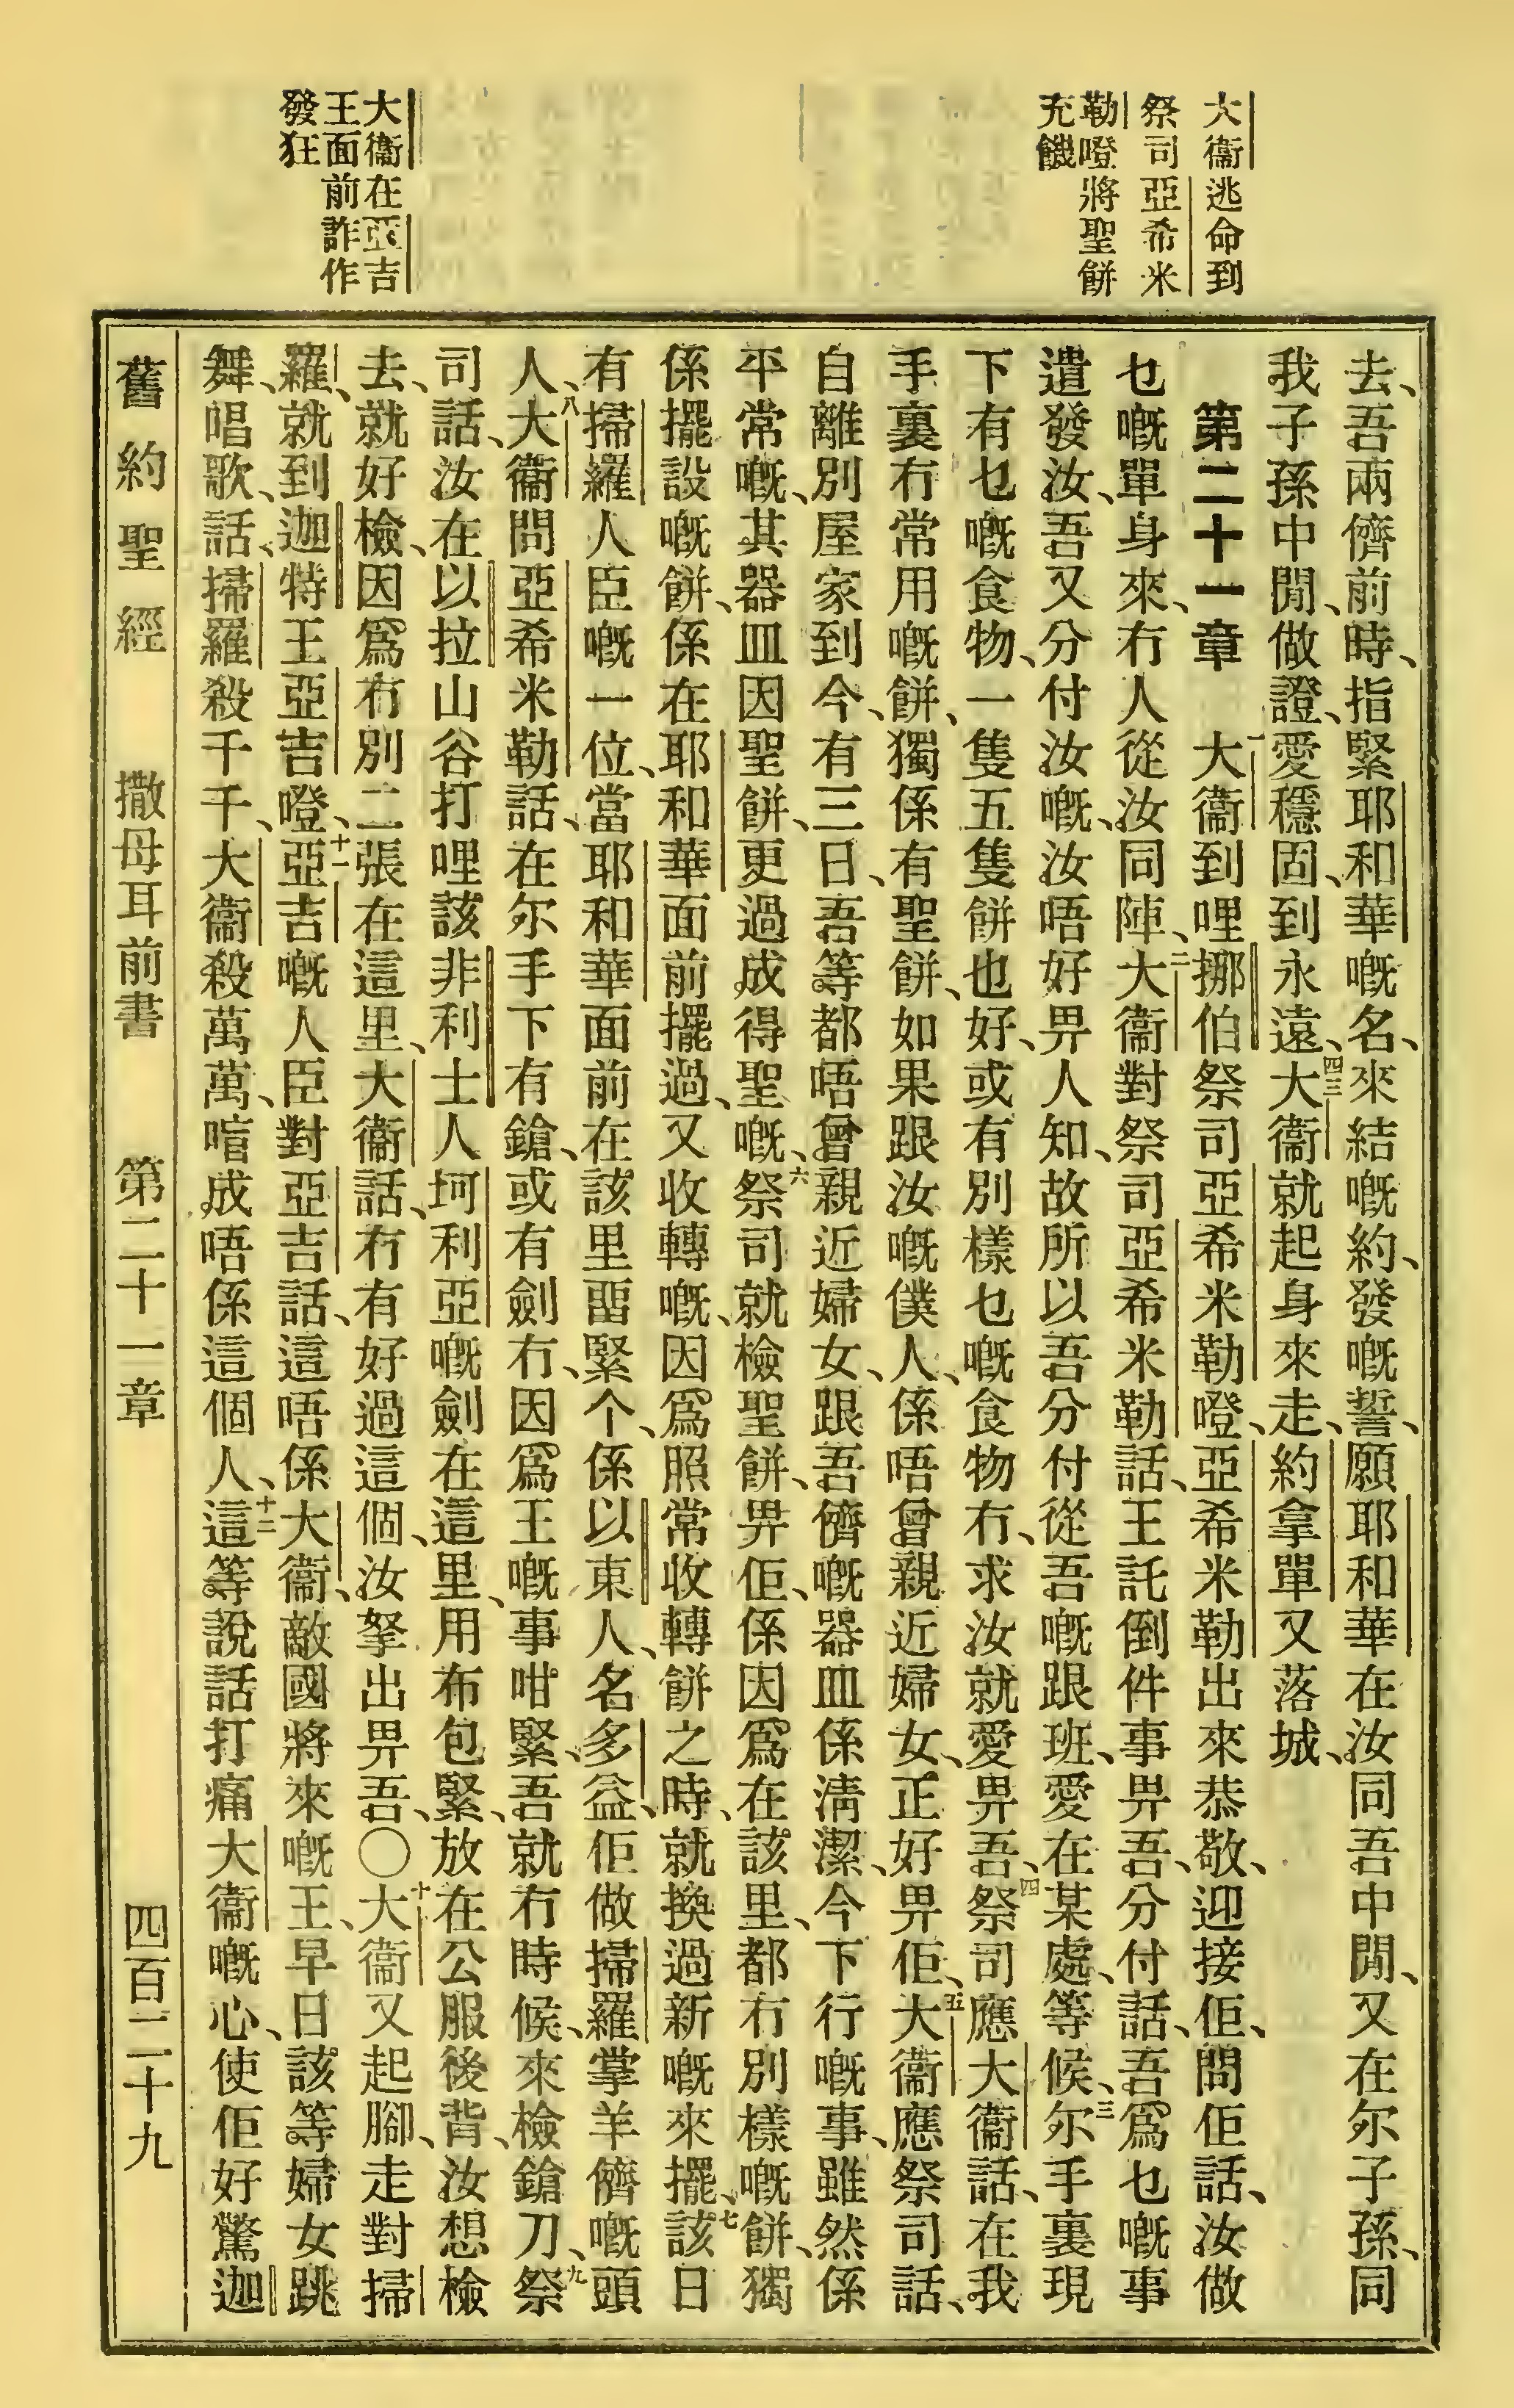 大衞逃命到
祭司亞希米
勒嶝將聖餅
充饑
大衞在亞吉
王面前詐作
發狂
去、吾兩儕前時、指緊耶和華嘅名、來結嘅約、發嘅誓、願耶和華在汝同吾中閒、又在尔子孫、同
我子孫中閒、做證、愛穩固、到永遠、四三大衞就起身來走、約拿單又落城、
第二十一章　一大衞到哩挪伯祭司亞希米勒嶝、亞希米勒出來恭敬、迎接佢、問佢話、汝做
乜嘅單身來、冇人從汝同陣、二大衞對祭司亞希米勒話、王託倒件事畀吾、分付話、吾爲乜嘅事
遣發汝、吾又分付汝嘅、汝唔好畀人知、故所以吾分付從吾嘅跟班、愛在某處、等候、三尔手裏現
下有乜嘅食物、一隻五隻餅也好、或有別樣乜嘅食物冇、求汝就愛畀吾、四祭司應大衞話、在我
手裏冇常用嘅餅、獨係有聖餅、如果跟汝嘅僕人、係唔曾親近婦女、正好畀佢、五大衞應祭司話、
自離別屋家到今、有三日、吾等都唔曾親近婦女、跟吾儕嘅器皿係淸潔、今下行嘅事、雖然係
平常嘅、其器皿因聖餅、更過成得聖嘅、六祭司就檢聖餅、畀佢、係因爲在該里、都冇別樣嘅餅、獨
係擺設嘅餅、係在耶和華面前擺過、又收轉嘅、因爲照常收轉餅之時、就換過新嘅來擺、七該日
有掃羅人臣嘅一位、當耶和華面前在該里畱緊个、係以東人、名多益、佢做掃羅掌羊儕嘅頭
人、八大衞問亞希米勒話、在尔手下有鎗、或有劍冇、因爲王嘅事咁緊、吾就冇時候、來檢鎗刀、九祭
司話、汝在以拉山谷打哩該非利士人坷利亞嘅劍在這里、用布包緊、放在公服後背、汝想檢
去、就好檢、因爲冇別二張在這里、大衞話、冇有好過這個、汝拏出畀吾、〇十大衞又起腳、走對掃
羅、就到迦特王亞吉嶝、十一亞吉嘅人臣對亞吉話、這唔係大衞、敵國將來嘅王、早日該等婦女跳
舞、唱歌、話、掃羅殺千千、大衞殺萬萬、喑成唔係這個人、十二這等說話打痛大衞嘅心、使佢好驚迦
舊約聖經　撒母耳前書　第二十一章　四百二十九